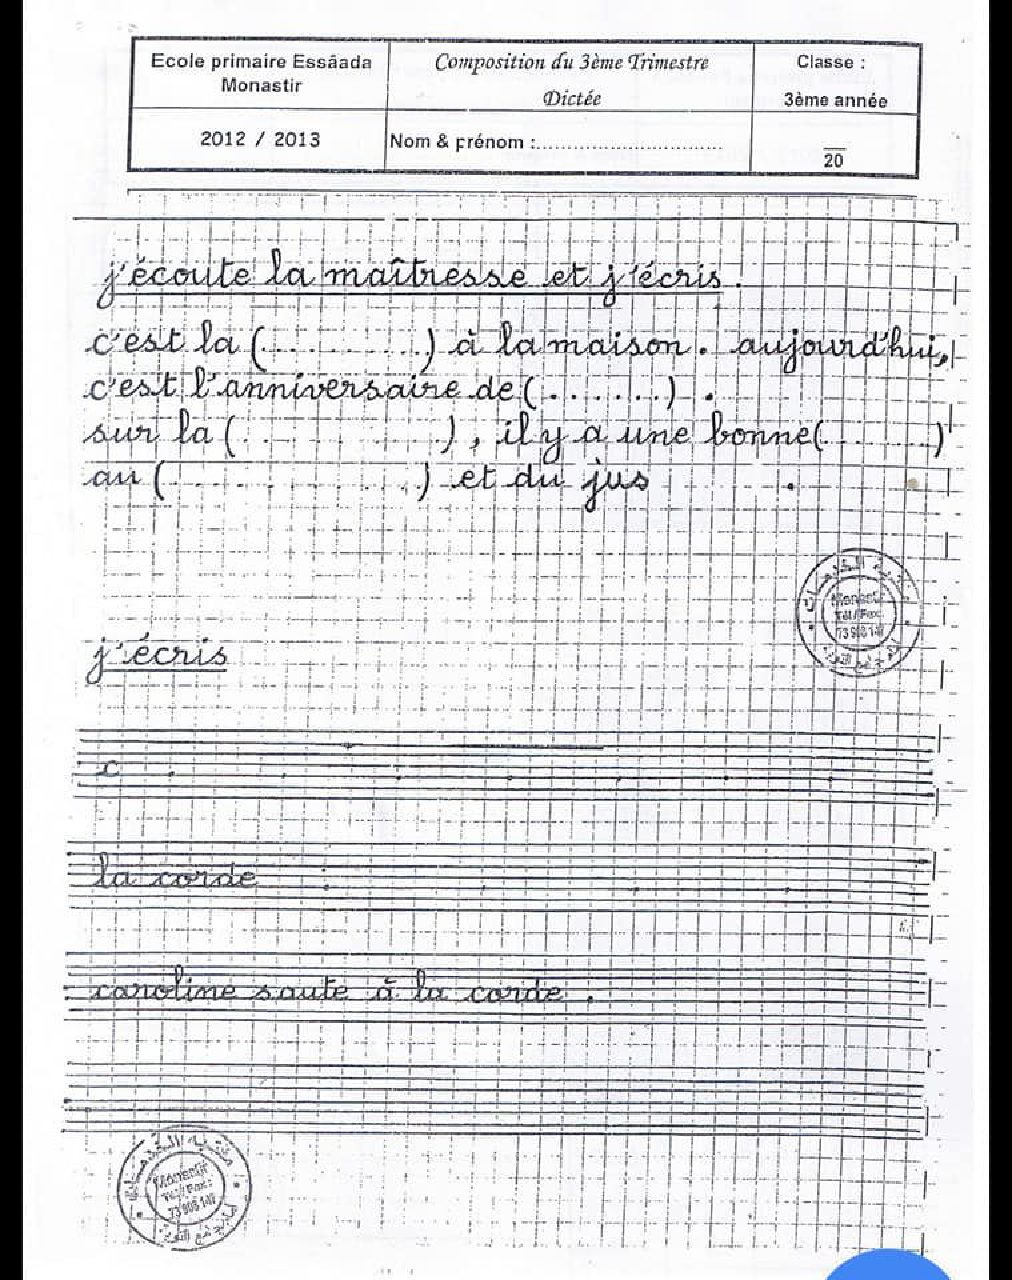 Ecole primaire Essâada
Monastir
Composition du 3ème Trimestre
Dictée
Classe :
3ème année
2012 / 2013
Nom & prénom :................................
20
j'écoute la maîtresse et j'écris.
c'est la (...........) à la maison. aujourd'hui,
c'est l'anniversaire de (.......).
sur la (............), il y a une bonne (.......)
au (..............) et du jus .
Monastir
Tél/Fax:
j'écris
c
la corde
caroline saute à la corde.
Monastir
Tél/Fax: